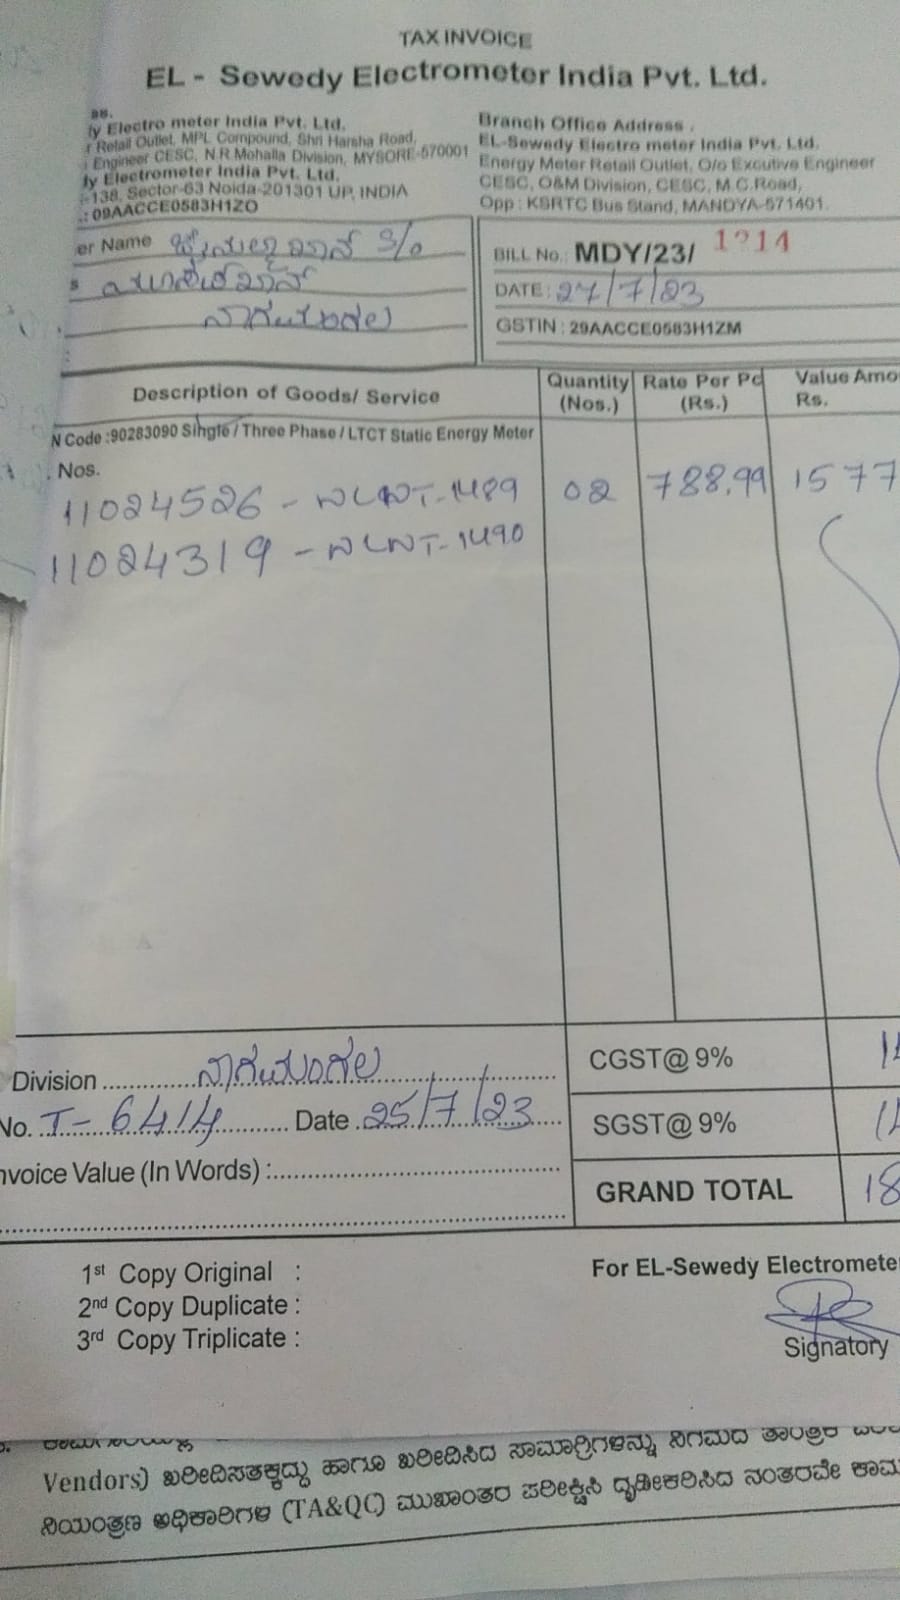 TAX INVOICE
EL - Sewedy Electrometer India Pvt. Ltd.
ly Electro meter India Pvt. Ltd.
Retail Outlet, MPL Compound, Shri Harsha Road,
Engineer CESC, N.R.Mohalla Division, MYSORE-570001
ly Electrometer India Pvt. Ltd.
-138, Sector-63 Noida-201301 UP, INDIA
.: 09AACCE0583H1ZO
Branch Office Address .
EL-Sewedy Electro meter India Pvt. Ltd.
Energy Meter Retail Outlet, O/o Excutive Engineer
CESC, O&M Division, CESC, M.C.Road,
Opp : KSRTC Bus Stand, MANDYA-571401.
er Name S/o
ನಾಗಮಂಗಲ
BILL No.: MDY/23/ 1214
DATE : 27/7/23
GSTIN : 29AACCE0583H1ZM
Description of Goods/ Service Quantity (Nos.) Rate Per Pc (Rs.) Value Amo Rs.
N Code :90283090 Single / Three Phase / LTCT Static Energy Meter
. Nos.
11024526 - NLNT-1489 02 788.99 1577
11024319 - NLNT-1490
Division ನಾಗಮಂಗಲ CGST@ 9%
No. T-6414 Date 25/7/23 SGST@ 9%
nvoice Value (In Words) :
GRAND TOTAL 18
1st Copy Original :
2nd Copy Duplicate :
3rd Copy Triplicate :
For EL-Sewedy Electrometer
Signatory
Vendors) ಖರೀದಿಸತಕ್ಕದ್ದು ಹಾಗೂ ಖರೀದಿಸಿದ ಸಾಮಾಗ್ರಿಗಳನ್ನು ನಿಗಮದ ತಾಂತ್ರಿಕ
ನಿಯಂತ್ರಣ ಅಧಿಕಾರಿಗಳ (TA&QC) ಮುಖಾಂತರ ಪರೀಕ್ಷಿಸಿ ದೃಢೀಕರಿಸಿದ ನಂತರವೇ ಕಾಮ